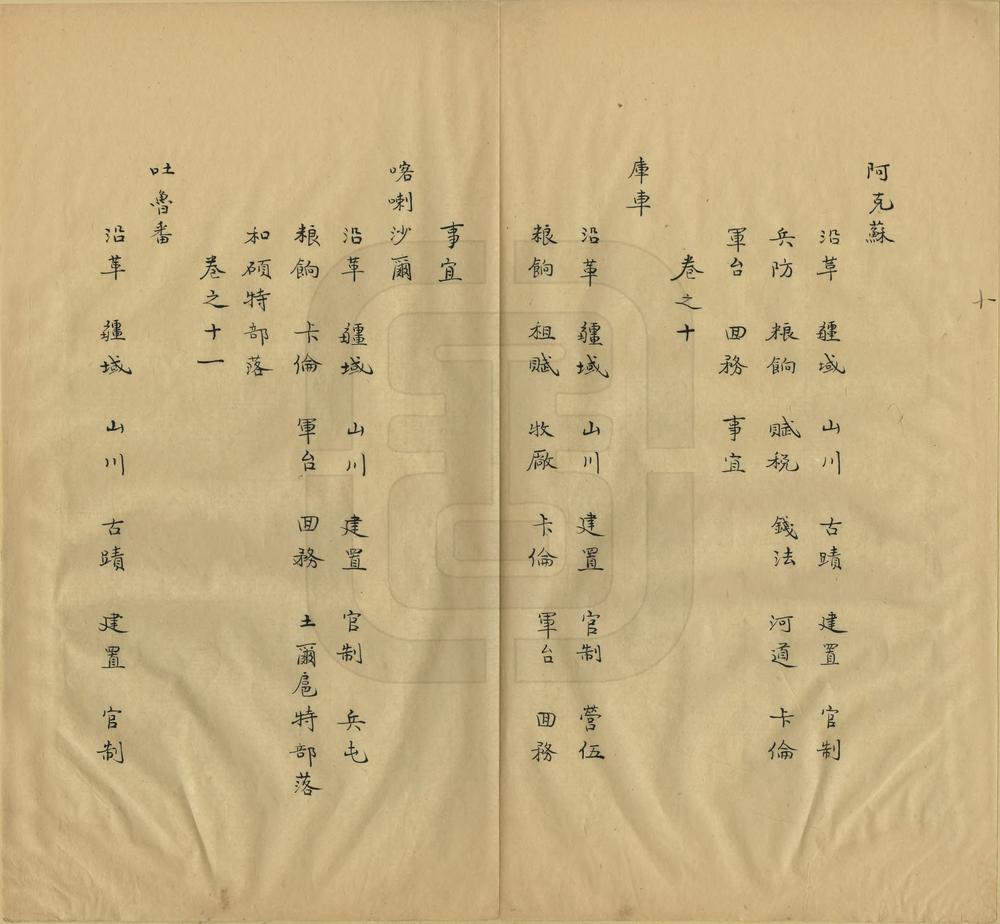 十
阿克蘇
沿革 疆域 山川 古蹟 建置 官制
兵防 粮餉 賦税 錢法 河道 卡倫
軍台 回務 事宜
卷之十
庫車
沿革 疆域 山川 建置 官制 營伍
粮餉 租賦 牧廠 卡倫 軍台 回務
事宜
喀喇沙爾
沿革 疆域 山川 建置 官制 兵屯
粮餉 卡倫 軍台 回務 土爾扈特部落
和碩特部落
卷之十一
吐魯番
沿革 疆域 山川 古蹟 建置 官制